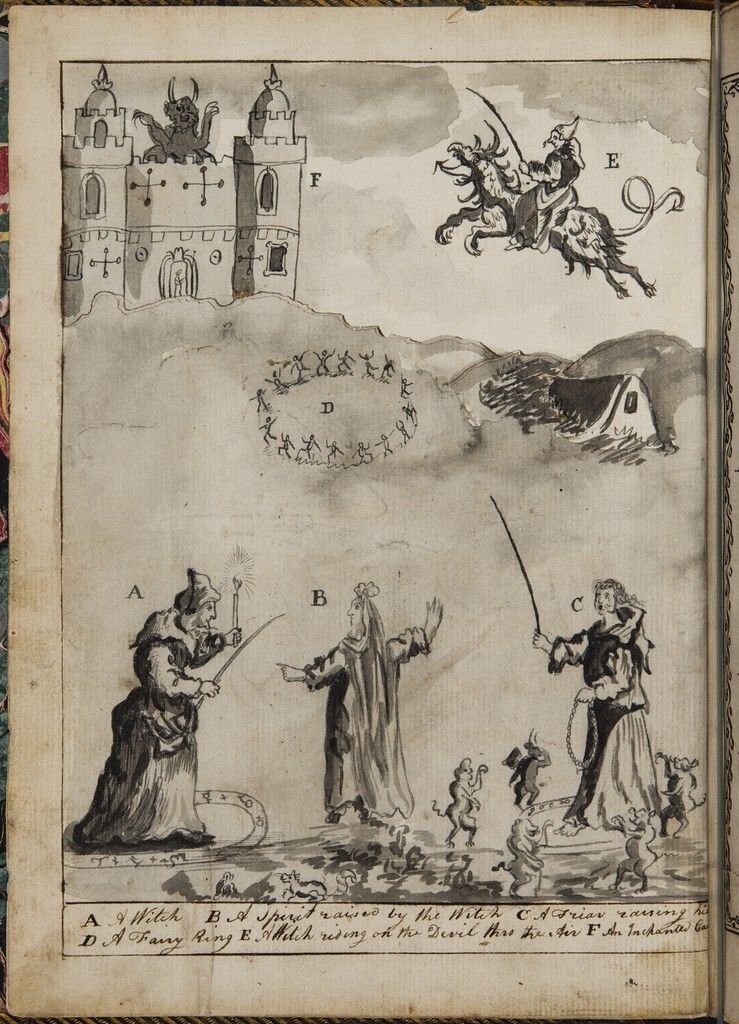 F
E
D
A
B
C
A A Witch B A Spirit raised by the Witch C A Friar raising
D A Fairy Ring E A Witch riding on the Devil thro the Air F An Inchanted